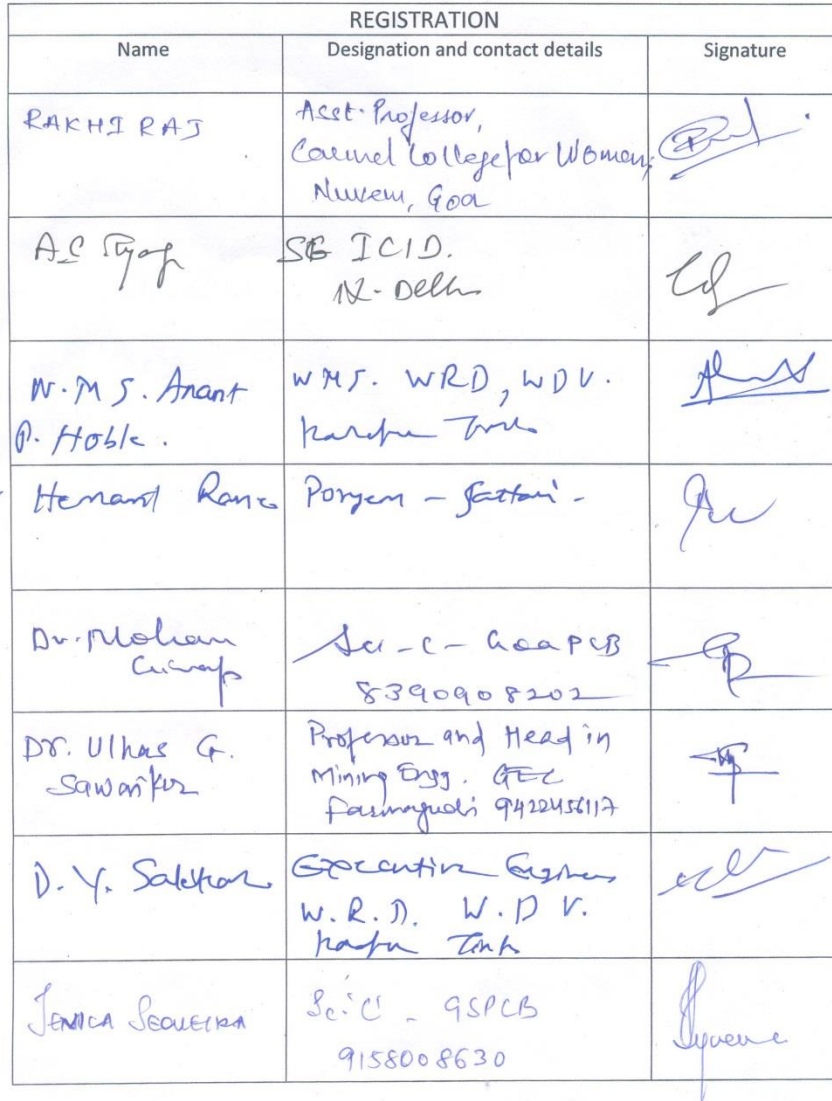 REGISTRATION
Name Designation and contact details Signature
RAKHI RAJ
Asst. Professor,
Carmel College for Women,
Nuvem, Goa
A.C Tyagi
SG ICID.
N-Delhi
W.M S. Anant
P. Hoble.
WMS. WRD, WDV.
Hemant Rane
Poryem - Sattari -
Dr. Mohan
Sci - C - Goa PCB
8390908202
Dr. Ulhas G.
Sawaiker
Professor and Head in
Mining Engg. GEC
Farmagudi 9422456117
D. Y. Salkar
Executive Engineer
W. R. D. W. D V.
JENICA SEQUEIRA
Sc. 'C' - GSPCB
9158008630